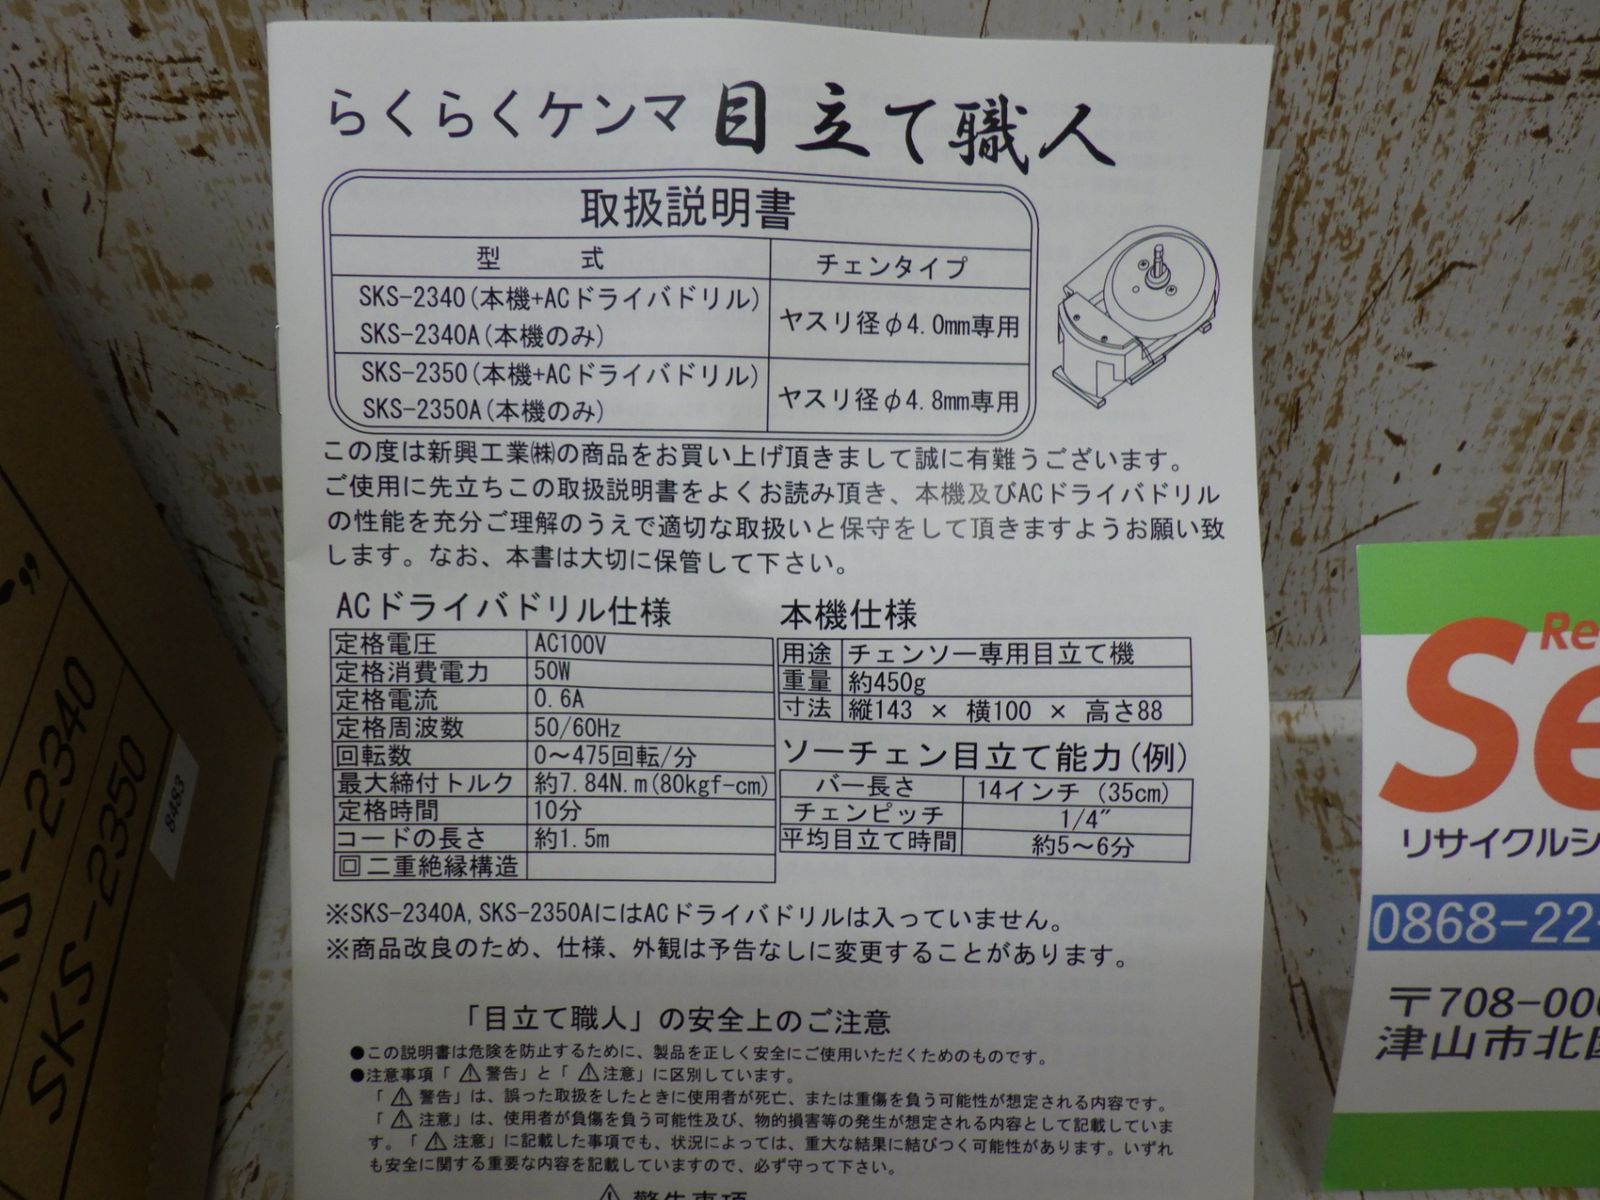 らくらくケンマ 目立て職人
取扱説明書
型 式 チェンタイプ
SKS-2340(本機+ACドライバドリル)
SKS-2340A(本機のみ)
ヤスリ径φ4.0mm専用
SKS-2350(本機+ACドライバドリル)
SKS-2350A(本機のみ)
ヤスリ径φ4.8mm専用
この度は新興工業㈱の商品をお買い上げ頂きまして誠に有難うございます。
ご使用に先立ちこの取扱説明書をよくお読み頂き、本機及びACドライバドリル
の性能を充分ご理解のうえで適切な取扱いと保守をして頂きますようお願い致
します。なお、本書は大切に保管して下さい。
ACドライバドリル仕様
定格電圧 AC100V
定格消費電力 50W
定格電流 0.6A
定格周波数 50/60Hz
回転数 0～475回転/分
最大締付トルク 約7.84N.m(80kgf-cm)
定格時間 10分
コードの長さ 約1.5m
回二重絶縁構造
本機仕様
用途 チェンソー専用目立て機
重量 約450g
寸法 縦143 × 横100 × 高さ88
ソーチェン目立て能力(例)
バー長さ 14インチ (35cm)
チェンピッチ 1/4″
平均目立て時間 約5～6分
※SKS-2340A,SKS-2350AにはACドライバドリルは入っていません。
※商品改良のため、仕様、外観は予告なしに変更することがあります。
「目立て職人」の安全上のご注意
●この説明書は危険を防止するために、製品を正しく安全にご使用いただくためのものです。
●注意事項「⚠警告」と「⚠注意」に区別しています。
「⚠ 警告」は、誤った取扱をしたときに使用者が死亡、または重傷を負う可能性が想定される内容です。
「⚠ 注意」は、使用者が負傷を負う可能性及び、物的損害等の発生が想定される内容として記載していま
す。「⚠ 注意」に記載した事項でも、状況によっては、重大な結果に結びつく可能性があります。いずれ
も安全に関する重要な内容を記載していますので、必ず守って下さい。
⚠ 警告事項
SKS-2340
SKS-2350
8483
Re
Se
リサイクルシ
0868-22-
〒708-000
津山市北区